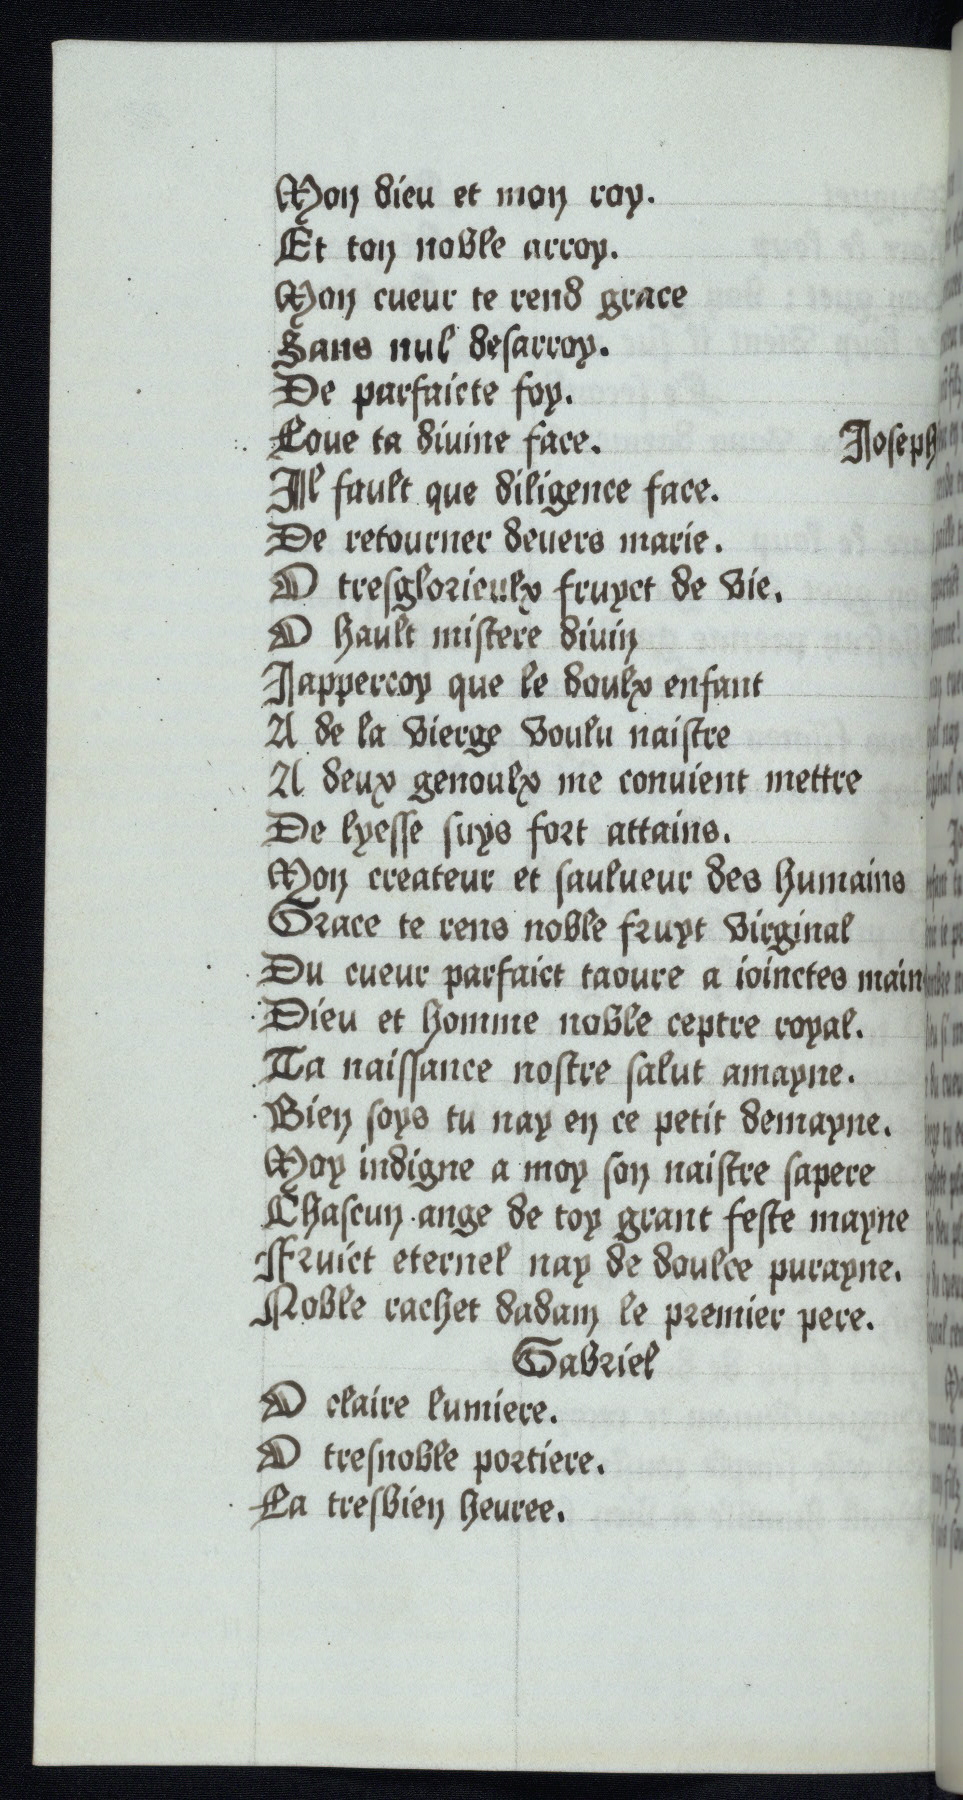 Mon dieu et mon roy.
Et ton noble arroy.
Mon cueur te rend grace
Sans nul desarroy.
De parfaicte foy.
Loue ta diuine face. Joseph
Il fault que diligence face.
De retourner deuers marie.
O tresglorieulx fruyct de vie.
O hault mistere diuin
Jappercoy que le doulx enfant
A de la vierge voulu naistre
A deux genoulx me conuient mettre
De lyesse suys fort attains.
Mon createur et saulueur des humains
Grace te rens noble fruyt virginal
Du cueur parfaict taoure a ioinctes main
Dieu et homme noble ceptre royal.
Ta naissance nostre salut amayne.
Bien soys tu nay en ce petit demayne.
Moy indigne a moy son naistre sapere
Chascun ange de toy grant feste mayne
Fruict eternel nay de doulce purayne.
Noble rachet dadam le premier pere.
Gabriel
O claire lumiere.
O tresnoble portiere.
La tresbien heuree.